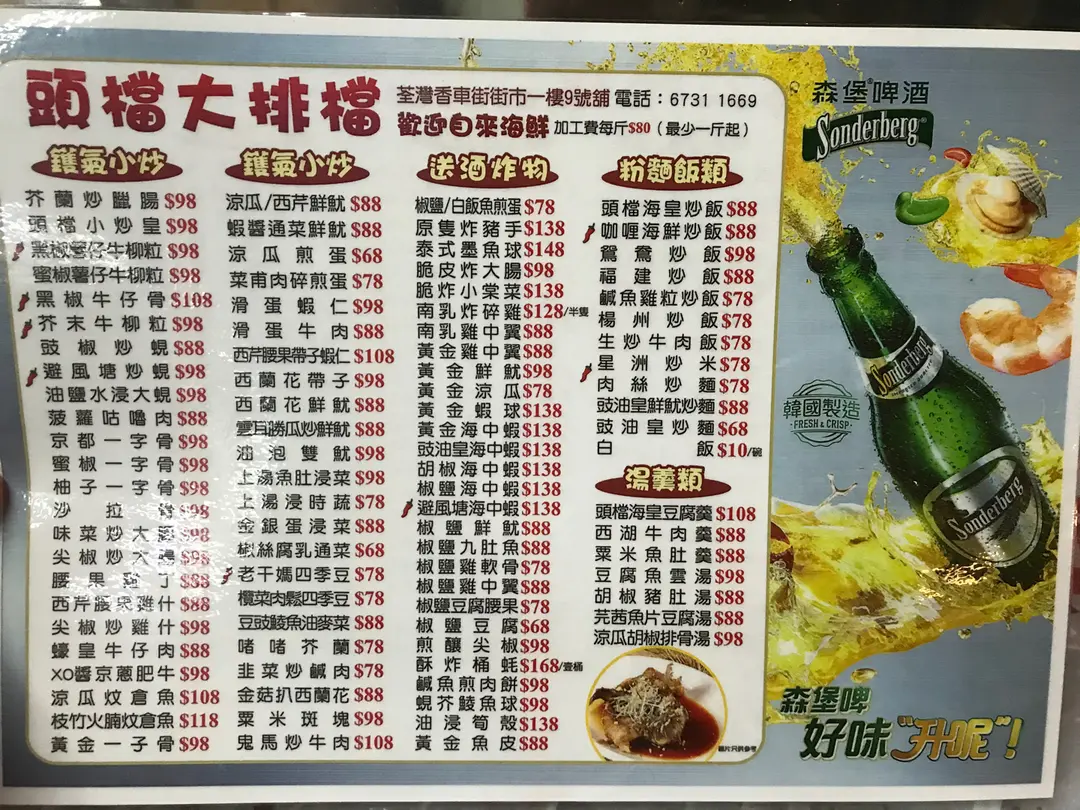 頭檔大排檔
荃灣香車街街市一樓9號舖 電話：6731 1669
歡迎自來海鮮 加工費每斤$80（最少一斤起）
鑊氣小炒
芥蘭炒臘腸 $98
頭檔小炒皇 $98
黑椒薯仔牛柳粒 $98
蜜椒薯仔牛柳粒 $98
黑椒牛仔骨 $108
芥末牛柳粒 $98
豉椒炒蜆 $88
避風塘炒蜆 $98
油鹽水浸大蜆 $98
菠蘿咕嚕肉 $88
京都一字骨 $98
蜜椒一字骨 $98
柚子一字骨 $98
沙拉骨 $98
味菜炒大腸 $98
尖椒炒大腸 $98
腰果雞丁 $88
西芹腰果雞什 $88
尖椒炒雞什 $98
蠔皇牛仔肉 $88
XO醬京蔥肥牛 $98
涼瓜炆倉魚 $108
枝竹火腩炆倉魚 $118
黃金一子骨 $98
鑊氣小炒
涼瓜/西芹鮮魷 $88
蝦醬通菜鮮魷 $88
涼瓜煎蛋 $68
菜甫肉碎煎蛋 $78
滑蛋蝦仁 $98
滑蛋牛肉 $88
西芹腰果帶子蝦仁 $108
西蘭花帶子 $98
西蘭花鮮魷 $88
雲耳勝瓜炒鮮魷 $88
油泡雙魷 $98
上湯魚肚浸菜 $98
上湯浸時蔬 $78
金銀蛋浸菜 $88
椒絲腐乳通菜 $68
老干媽四季豆 $78
欖菜肉鬆四季豆 $78
豆豉鯪魚油麥菜 $88
啫啫芥蘭 $78
韭菜炒鹹肉 $78
金菇扒西蘭花 $88
粟米斑塊 $98
鬼馬炒牛肉 $108
送酒炸物
椒鹽/白飯魚煎蛋 $78
原隻炸豬手 $138
泰式墨魚球 $148
脆皮炸大腸 $98
脆炸小棠菜 $138
南乳炸碎雞 $128/半隻
南乳雞中翼 $88
黃金雞中翼 $88
黃金鮮魷 $98
黃金涼瓜 $78
黃金蝦球 $138
黃金海中蝦 $138
豉油皇海中蝦 $138
胡椒海中蝦 $138
椒鹽海中蝦 $138
避風塘海中蝦 $138
椒鹽鮮魷 $88
椒鹽九肚魚 $88
椒鹽雞軟骨 $78
椒鹽雞中翼 $88
椒鹽豆腐腰果 $78
椒鹽豆腐 $68
煎釀尖椒 $98
酥炸桶蚝 $168/壹桶
鹹魚煎肉餅 $98
蜆芥鯪魚球 $98
油浸筍殼 $138
黃金魚皮 $88
粉麵飯類
頭檔海皇炒飯 $88
咖喱海鮮炒飯 $88
鴛鴦炒飯 $98
福建炒飯 $88
鹹魚雞粒炒飯 $78
楊州炒飯 $78
生炒牛肉飯 $78
星洲炒米 $78
肉絲炒麵 $78
豉油皇鮮魷炒麵 $88
豉油皇炒麵 $68
白飯 $10/碗
湯羹類
頭檔海皇豆腐羹 $108
西湖牛肉羹 $88
粟米魚肚羹 $88
豆腐魚雲湯 $98
胡椒豬肚湯 $88
芫茜魚片豆腐湯 $88
涼瓜胡椒排骨湯 $98
圖片只供參考
森堡®啤酒
Sonderberg®
Sonderberg
韓國製造
FRESH & CRISP
Sonderberg
森堡啤
好味“升呢”！